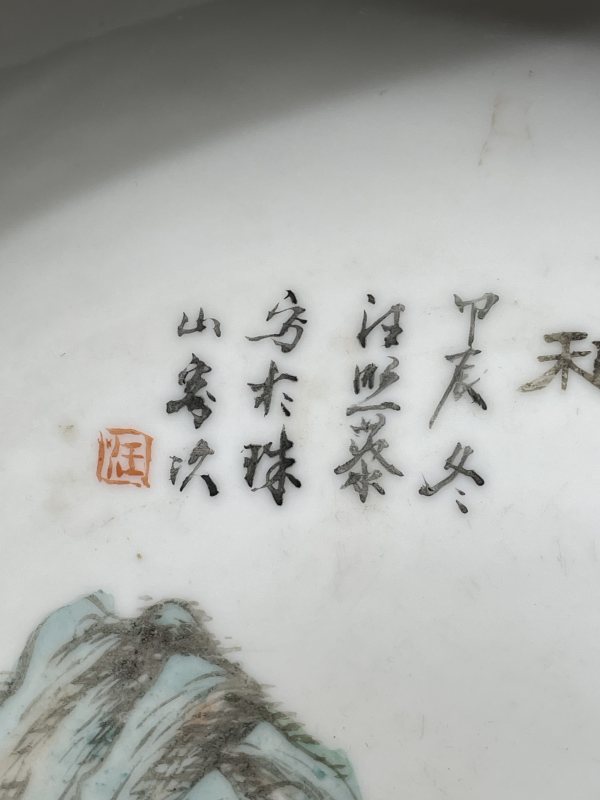 甲辰冬
汪照藜
写於珠
山客次
汪